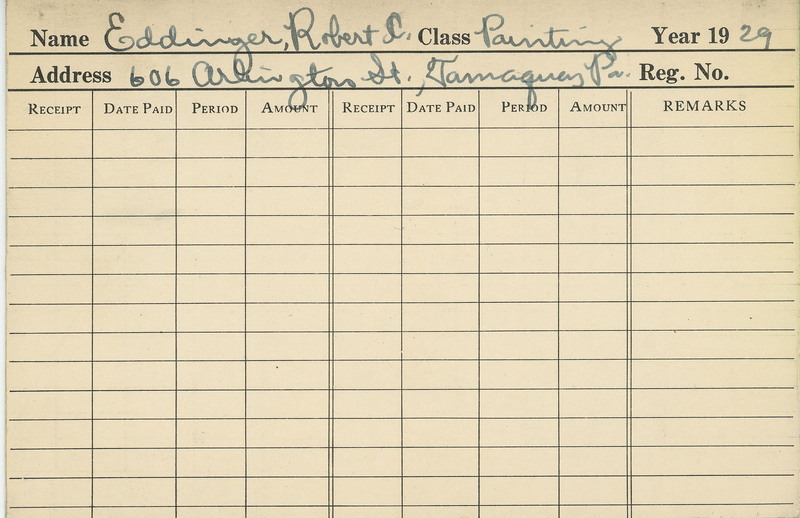 Name Eddinger, Robert C. Class Painting Year 1929
Address 606 Arlington St., Tamaqua, Pa. Reg. No.
RECEIPT DATE PAID PERIOD AMOUNT RECEIPT DATE PAID PERIOD AMOUNT REMARKS